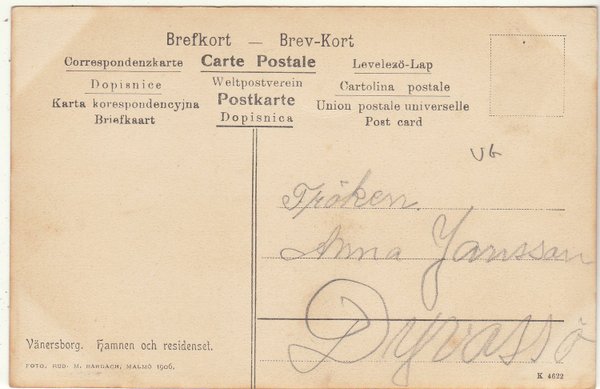 Brefkort — Brev-Kort
Correspondenzkarte Carte Postale Levelező-Lap
Dopisnice Weltpostverein Cartolina postale
Karta korespondencyjna Postkarte Union postale universelle
Briefkaart Dopisnica Post card
Fröken
Anna Jansson
Dyvassö
Vänersborg. Hamnen och residenset.
FOTO. RUD. M. MALMÖ 1906.
K 4622